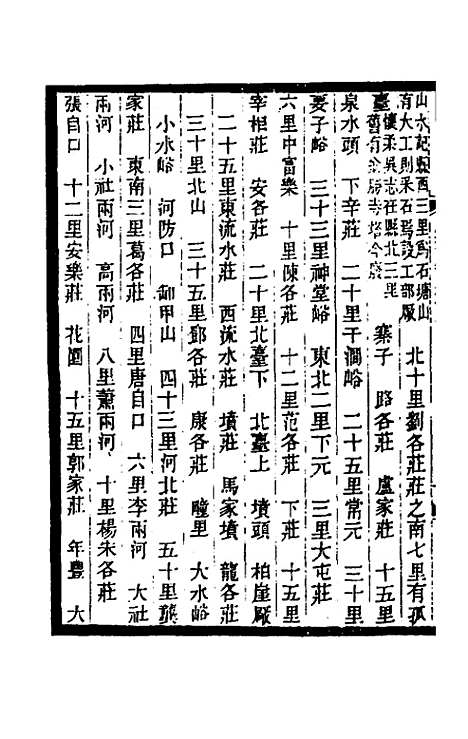 山水記縣西三里爲石塘山
有大工則采石爲設工部厰
北十里劉各莊莊之南七里有孤
懷柔吳志在縣北三里
臺舊有金勝寺塔今廢
寨子 路各莊 盧家莊 十五里
泉水頭 下辛莊 二十里干澗峪 二十五里常元 三十里
要子峪 三十三里神堂峪 東北二里下元 三里大屯莊
六里中富樂 十里陳各莊 十二里范各莊 下莊 十五里
宰相莊 安各莊 二十里北臺下 北臺上 墳頭 柏崖厰
二十五里東流水莊 西流水莊 墳莊 馬家墳 龍各莊
三十里北山 三十五里鄧各莊 康各莊 疃里 大水峪
小水峪 河防口 卸甲山 四十三里河北莊 五十里龔
家莊 東南三里葛各莊 四里唐自口 六里李兩河 大社
兩河 小社兩河 高兩河 八里蕭兩河 十里楊宋各莊
張自口 十二里安樂莊 花園 十五里郭家莊 年豐 大